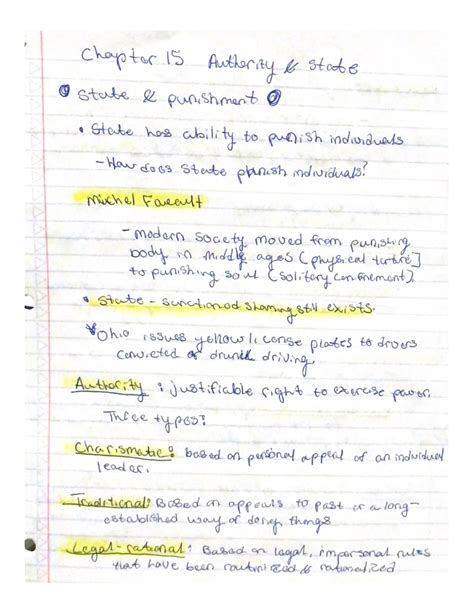 Chapter 15 Authority & State
State & punishment
• State has ability to punish individuals
- How does State punish individuals?
Michel Facault
- modern society moved from punishing
body in middle ages (physical torture]
to punishing soul (solitary confinement).
• State - sanctioned shaming still exists.
Ohio issues yellow license plates to drivers
convicted of drunk driving.
Authority : justifiable right to exercise power.
Three types:
Charismatic: based on personal appeal of an individual
leader.
Traditional: Based on appeals to past or a long-
established way of doing things
Legal-rational: Based on legal, impersonal rules
that have been routinized & rationalized